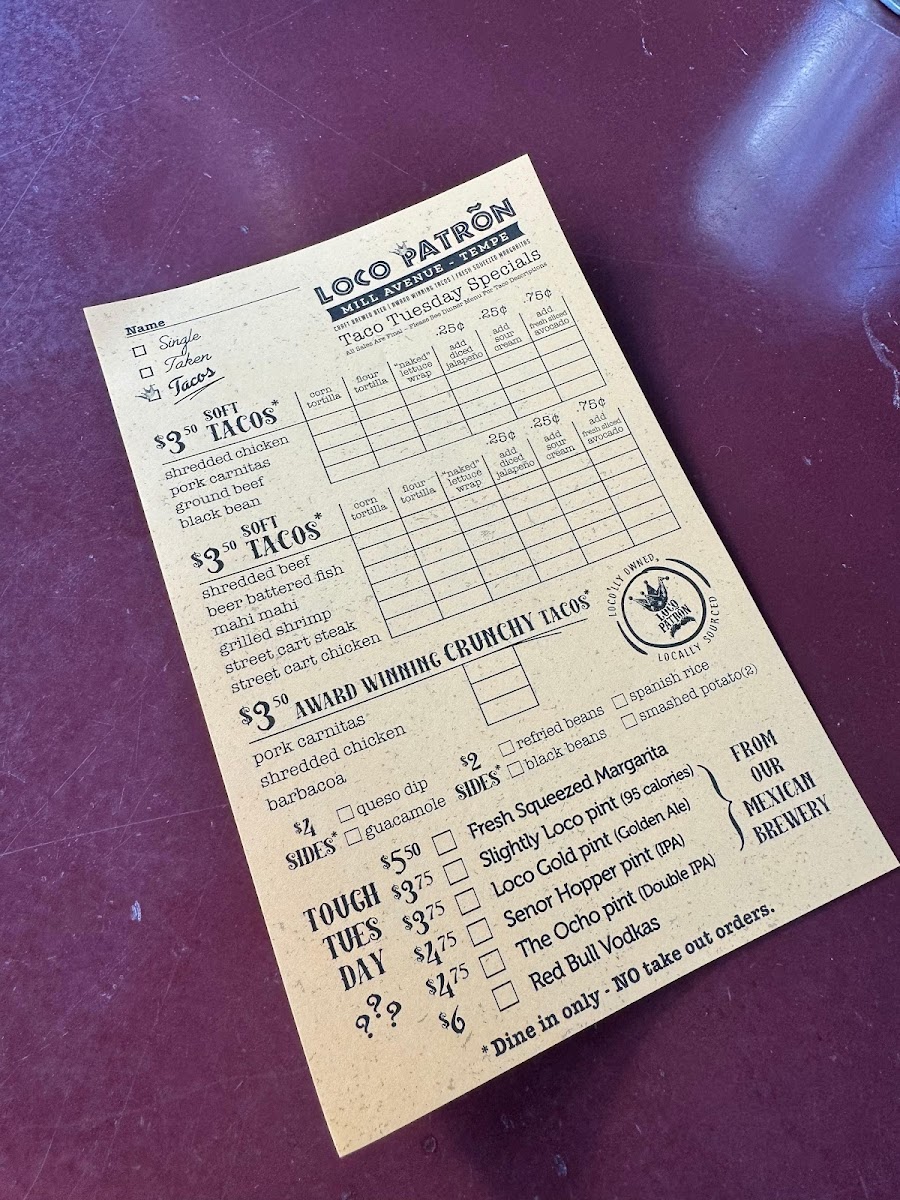 LOCO PATRÕN
MILL AVENUE - TEMPE
CRAFT BREWED BEER | AWARD WINNING TACOS | FRESH SQUEEZED MARGARITAS
Taco Tuesday Specials
All Sales Are Final - Please See Dinner Menu For Taco Descriptions
Name
Single
Taken
Tacos
$3.50 SOFT TACOS*
corn tortilla
flour tortilla
"naked" lettuce wrap
.25¢ add diced jalapeño
.25¢ add sour cream
.75¢ add fresh sliced avocado
shredded chicken
pork carnitas
ground beef
black bean
$3.50 SOFT TACOS*
corn tortilla
flour tortilla
"naked" lettuce wrap
.25¢ add diced jalapeño
.25¢ add sour cream
.75¢ add fresh sliced avocado
shredded beef
beer battered fish
mahi mahi
grilled shrimp
street cart steak
street cart chicken
LOCO'LLY OWNED,
LOCO PATRON
LOCALLY SOURCED
$3.50 AWARD WINNING CRUNCHY TACOS*
pork carnitas
shredded chicken
barbacoa
$4 SIDES*
queso dip
guacamole
$2 SIDES*
refried beans
spanish rice
black beans
smashed potato(2)
TOUGH
TUES
DAY
???
$5.50 Fresh Squeezed Margarita
$3.75 Slightly Loco pint (95 calories)
$3.75 Loco Gold pint (Golden Ale)
$4.75 Senor Hopper pint (IPA)
$4.75 The Ocho pint (Double IPA)
$6 Red Bull Vodkas
FROM
OUR
MEXICAN
BREWERY
*Dine in only - NO take out orders.